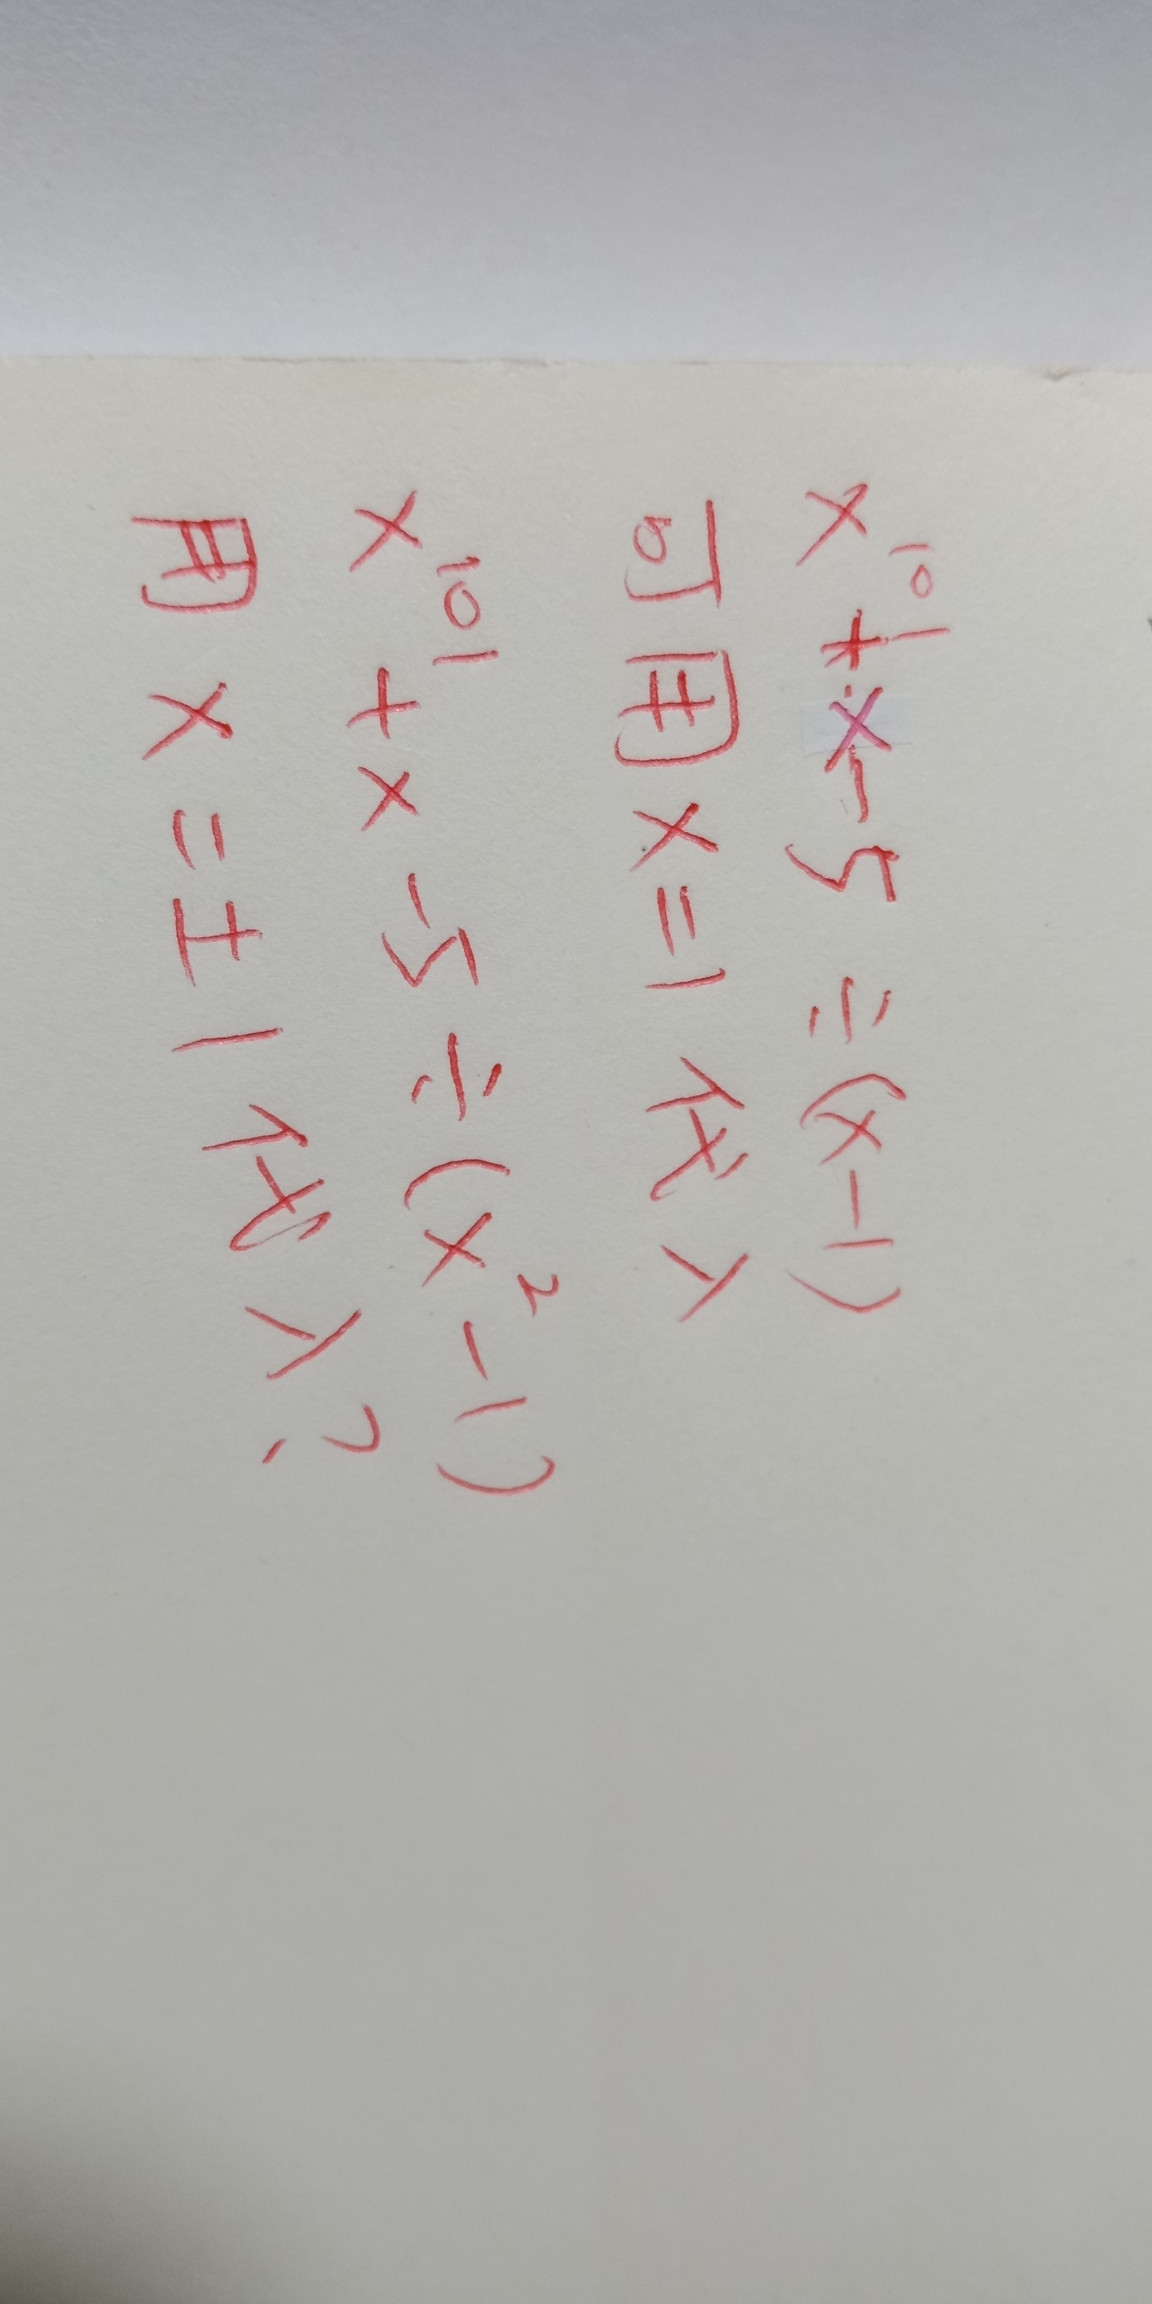 x¹⁰¹+x-5÷(x-1)
可用x=1代入
x¹⁰¹+x-5÷(x²-1)
用x=±1代入?